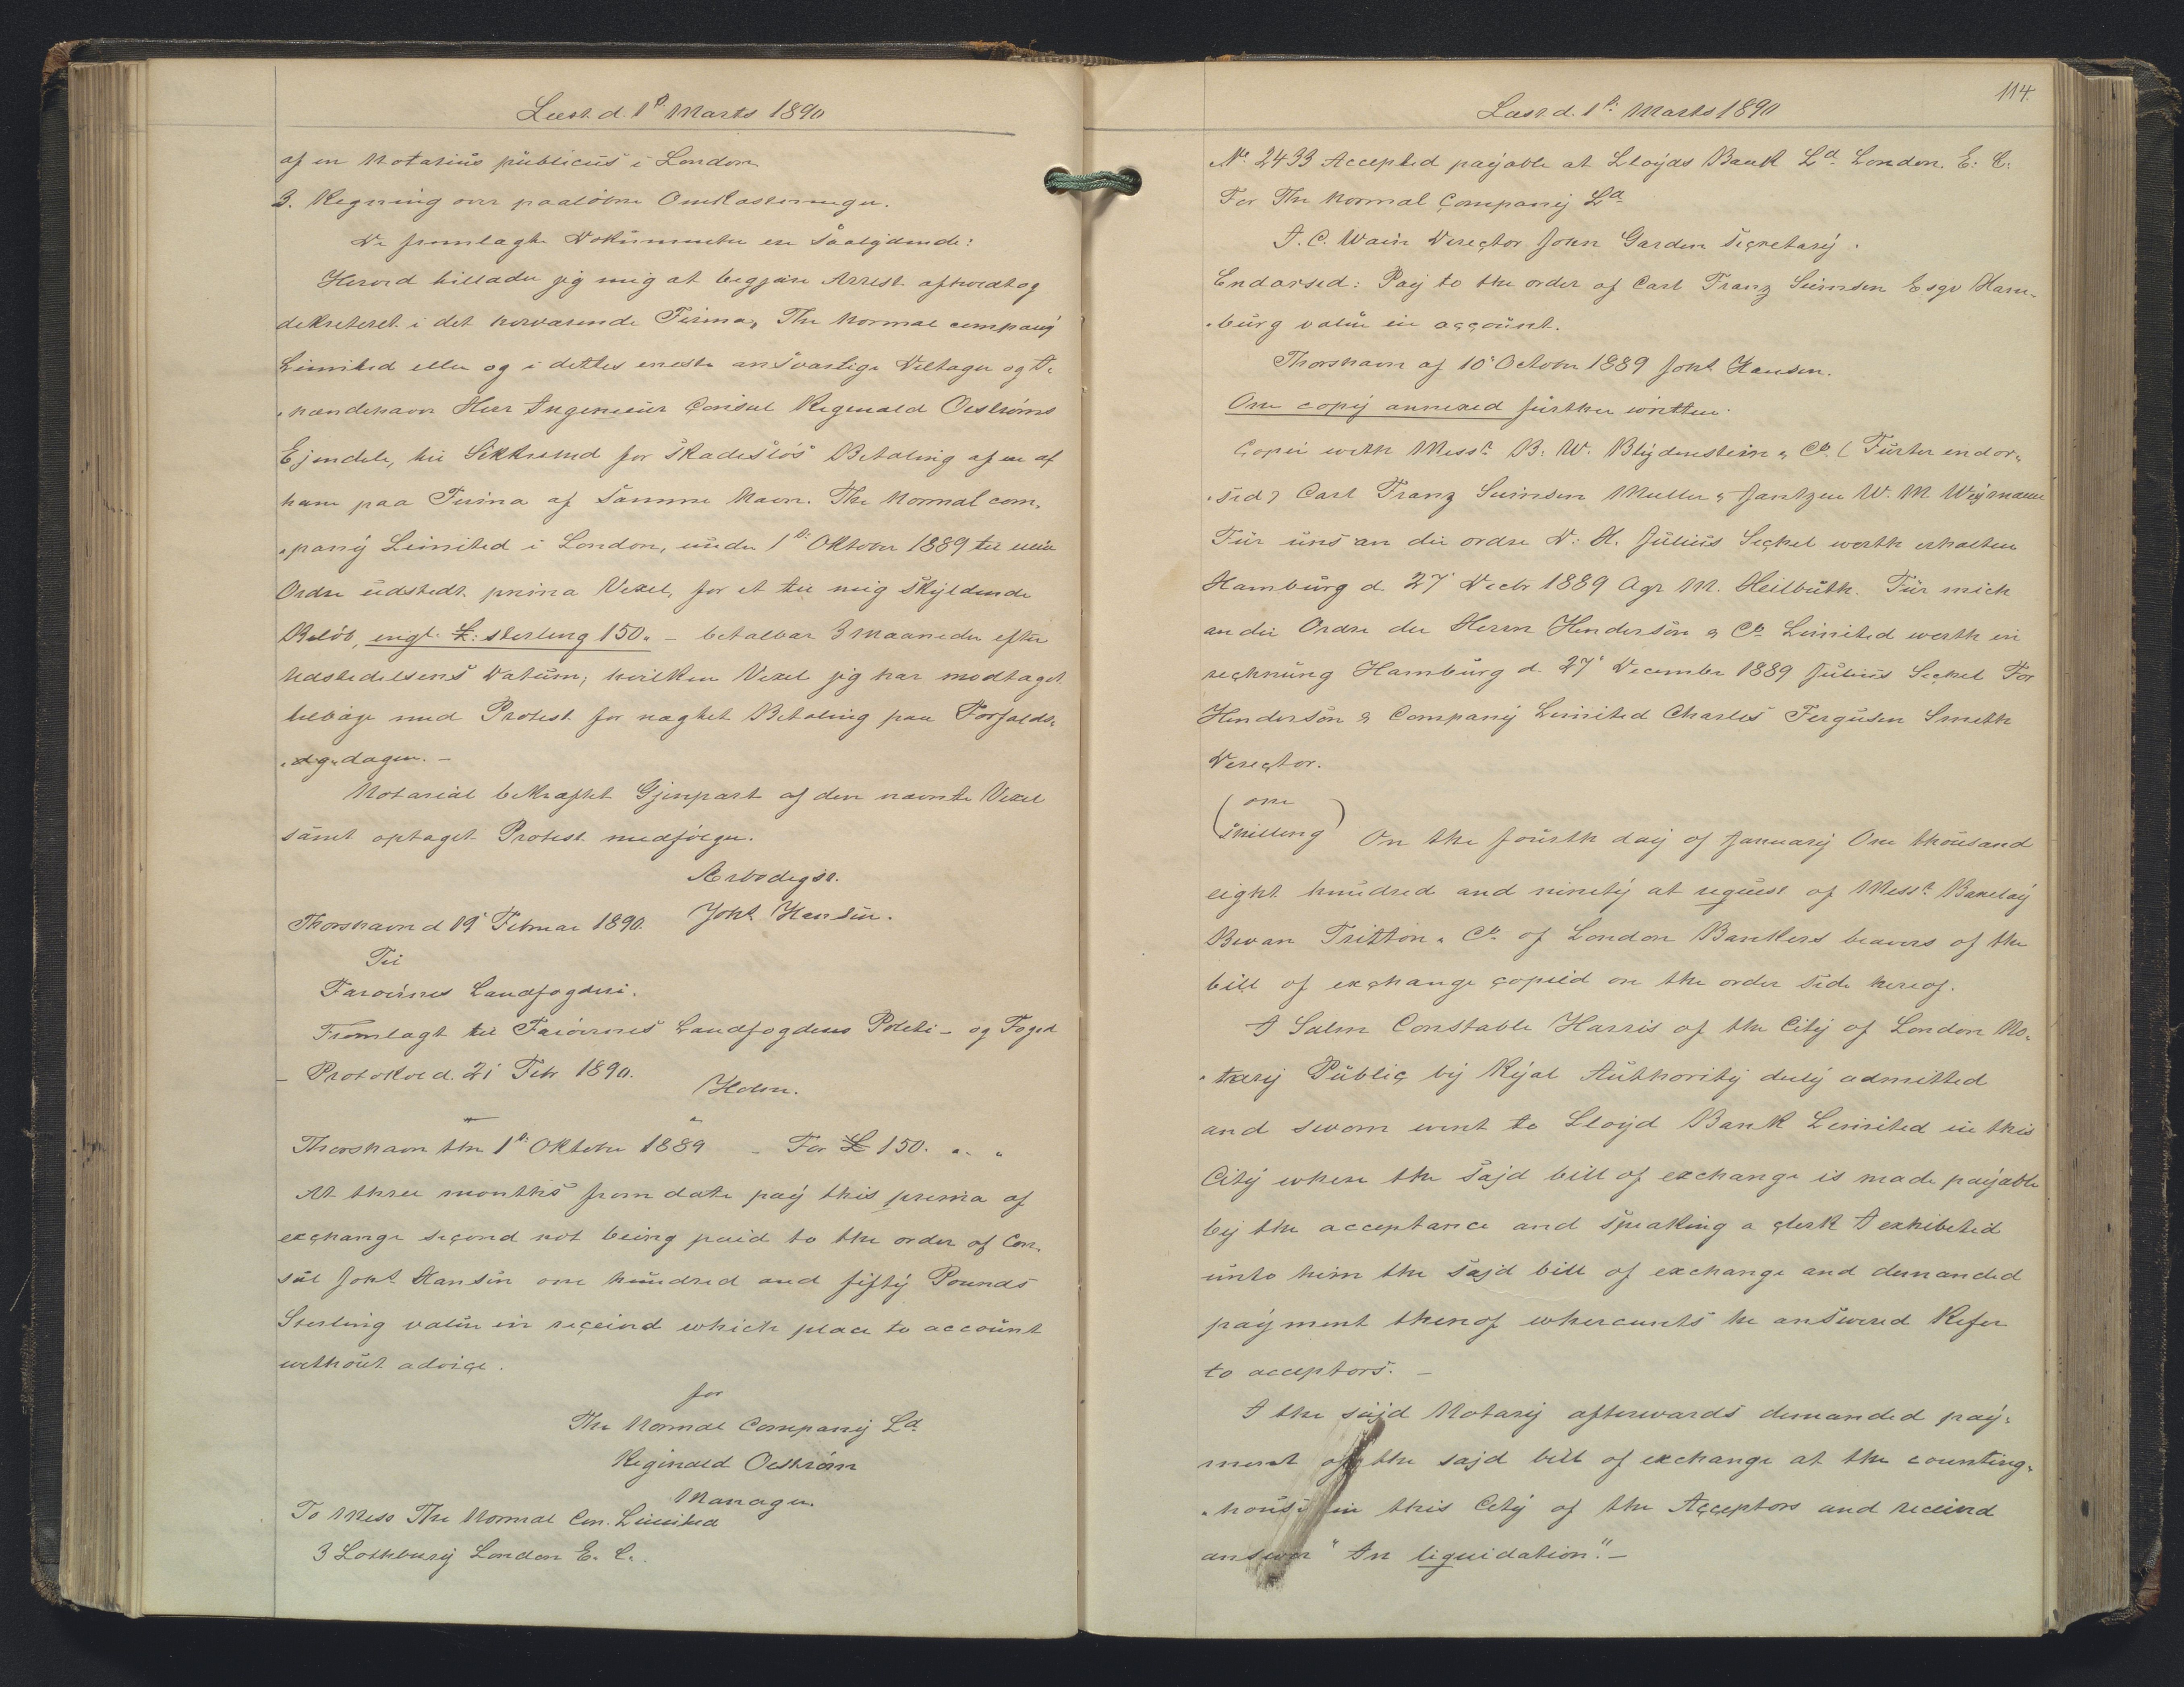 Læst d. 1ste Marts 1890
af en Notarius publicus i London
3. Regning over paaløbne Omkostninger.
De fremlagte Dokumenter ere saalydende:
Herved tillader jeg mig at begjære Arrest afholdt og
dekreteret i det herværende Firma, The Normal company
Limited eller og i dettes eneste ansvarlige Deltager og I.
hændehaver Herr Ingenieur Consul Reginald Oestrøms
Ejendele, til Sikkerhed for skadesløs Betaling af en af
ham paa Firma af samme Navn. The Normal com-
pany Limited i London, under 1ste Oktober 1889 til min
Ordre udstedt prima Vexel, for et til mig skyldende
Beløb, engl. £: sterling 150„ – betalbar 3 maaneder efter
Udstedelsens Datum, hvilken Vexel jeg har modtaget
tilbage med Protest for nægtet Betaling paa Forfalds-
dagen. –
Notarial bekræftet Gjenpart af den nævnte Vexel
samt optaget Protest medfølger.
Ærbødigst.
Thorshavn d 19' Februar 1890. Johs Hansen.
Til
Færøernes Landfogderi.
Fremlagt til Færøernes Landfogdens Politi- og Foged
– Protokol d. 21' Febr 1890.
Holm.
Thorshavn the 1ste Oktober 1889 – For £ 150. „ „
At three months from date pay this prima of
exchange second not being paid to the order of Con-
sul Johs Hansen one hundred and fifty Pounds
Sterling value in received which place to account
without advice.
for
The Normal Company Ld
Reginald Oestrøm
Manager.
To Mess The Normal Com. Limited
3 Lothbury London E. C.
114.
Læst d. 1ste Marts 1890
No 2433 Accepted payable at Lloyds Bank Ld London. E. C.
For The Normal Company Ld
J. C. Wain Director John Garden Secretary.
Endorsed: Pay to the order of Carl Franz Siemsen Esqr Ham-
burg value in account.
Thorshavn af 10' October 1889 Johs Hansen.
One copy annexed further written.
Copei with Messrs B. W. Blydenstein & Co. (Furter endor-
sed) Carl Franz Siemsen Muller & Jantzen W. M Weymann
Für uns an die ordre D: H. Julius Seckel werth erhalten
Hamburg d. 27' Decbr 1889 Agr M. Heilbuth. Für mich
an die Ordre der Herrn Henderson & Co Limited werth in
rechnung Hamburg d. 27' December 1889 Julius Seckel For
Henderson & Company Limited Charles Ferguson Smith
Director.
(one
shilling) On the fourth day of January One thousand
eight hundred and ninety at request of Messrs Barclay
Bevan Tritton & Co of London Bankers beavers of the
bill of exchange copied on the order side hereof.
I Salm Constable Harris of the City of London No-
tary Public by Ryal Authority duly admitted
and sworn went to Lloyd Bank Limited in this
City where the sajd bill of exchange is made payable
by the acceptance and speaking a clerk I exhibited
unto him the sajd bill of exchange and demanded
payment thereof whereunts he answered Refer
to acceptors. –
I the sajd Notary afterwards demanded pay-
ment of the sajd bill of exchange at the counting-
house in this City of the Acceptors and received
answer "In liquidation". –